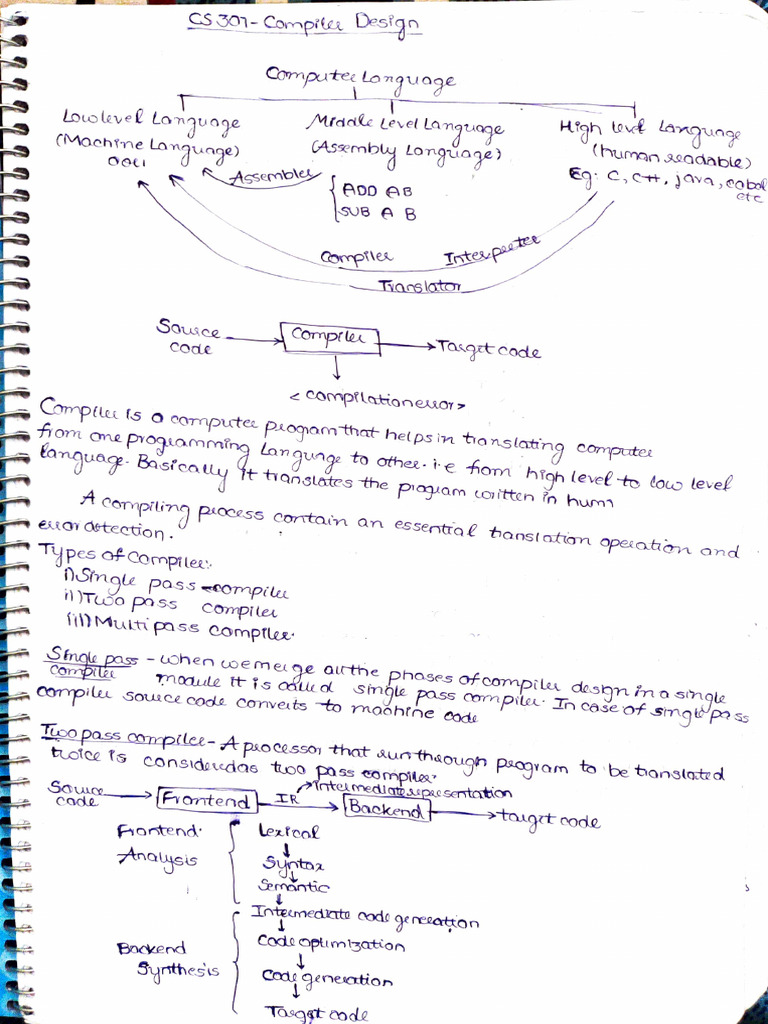 CS307-Compiler Design
Computer Language
Low level Language
(Machine Language)
0011
Middle Level Language
(Assembly Language)
High level Language
(human readable)
Eg: C, C++, java, cobol
etc
Assembler
ADD AB
SUB A B
Compiler
Interpreter
Translator
Source
code
Compiler
Target code
<compilation error>
Compiler is a computer program that helps in translating computer
from one programming Language to other. i.e from high level to low level
language. Basically it translates the program written in hum
A compiling process contain an essential translation operation and
error detection.
Types of Compiler:
i) Single pass compiler
ii) Two pass compiler
iii) Multi pass compiler.
Single pass compiler - when we merge all the phases of compiler design in a single
module it is called single pass compiler. In case of single pass
compiler source code converts to machine code
Two pass compiler - A processor that run through program to be translated
twice is considered as two pass compiler.
Source
code
Frontend
IR
intermediate representation
Backend
target code
Frontend.
Analysis
Lexical
Syntax
Semantic
Backend
Synthesis
Intermediate code generation
Code optimization
Code generation
Target code